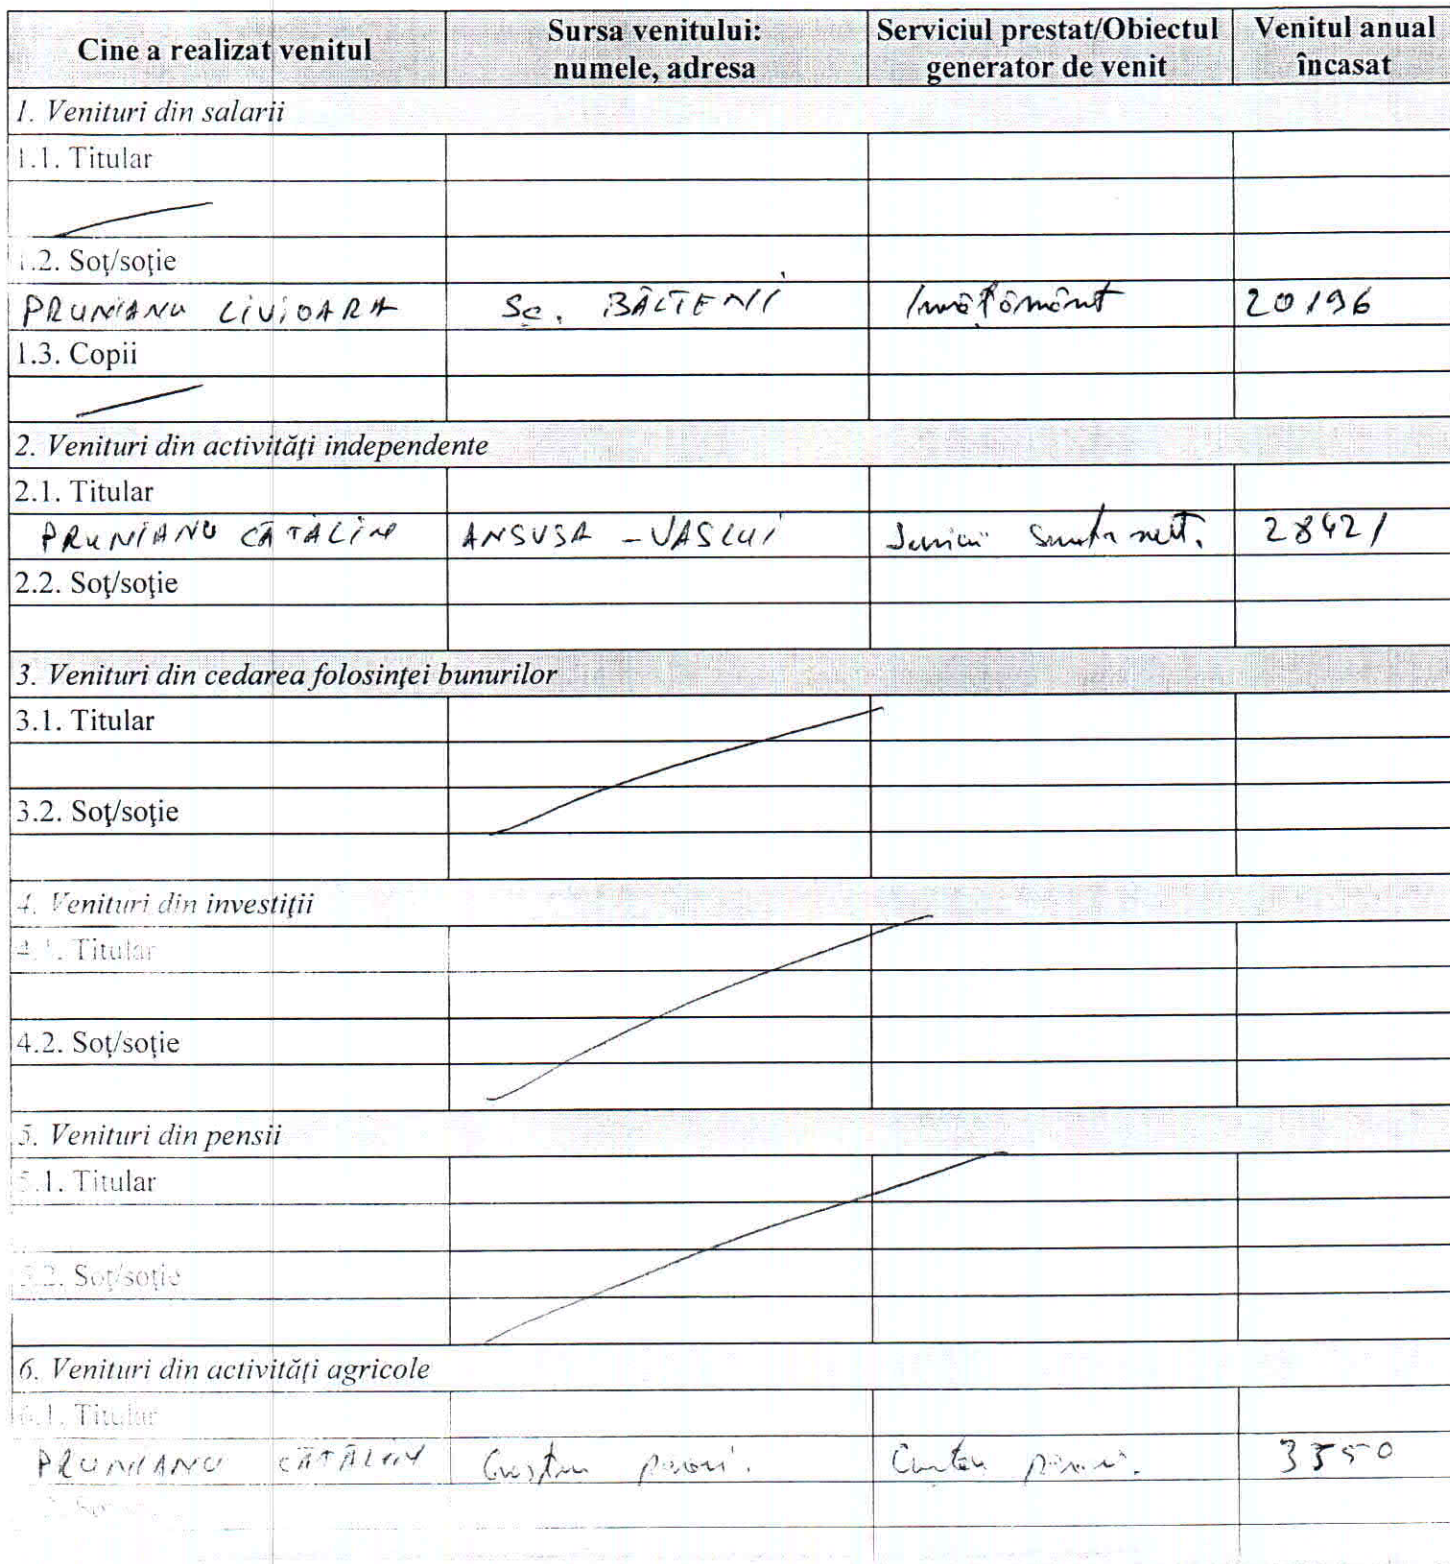 Cine a realizat venitul
Sursa venitului:
numele, adresa
Serviciul prestat/Obiectul
generator de venit
Venitul anual
încasat
1. Venituri din salarii
1.1. Titular
1.2. Soţ/soţie
PRUNIANU LIVIOARA Sc. BĂLTENII Învăţământ 20196
1.3. Copii
2. Venituri din activităţi independente
2.1. Titular
PRUNIANU CĂTĂLIN ANSVSA - VASLUI 28421
2.2. Soţ/soţie
3. Venituri din cedarea folosinţei bunurilor
3.1. Titular
3.2. Soţ/soţie
4. Venituri din investiţii
4.1. Titular
4.2. Soţ/soţie
5. Venituri din pensii
5.1. Titular
5.2. Soţ/soţie
6. Venituri din activităţi agricole
6.1. Titular
PRUNIANU CĂTĂLIN 3550